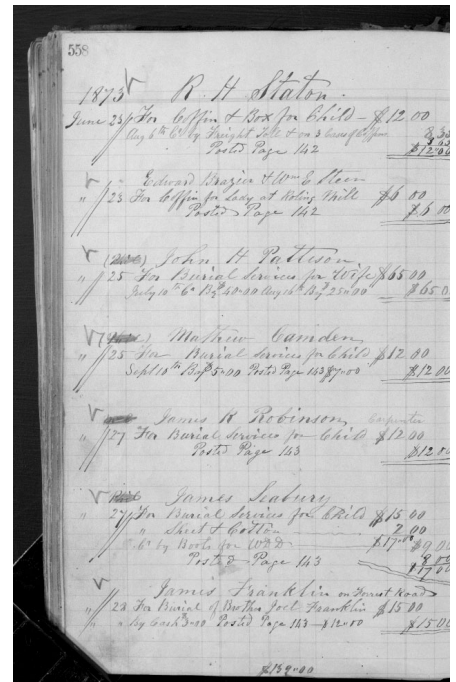 558
1873 R H Staton.
June 23 For Coffin & Box for Child - $12 00
Aug 6th Cr by Freight on 3 Cases of 8.35
Posted Page 142 $12.00
Edward Brazier & Wm E
" 23 For Coffin for Lady at Roling Mill $6 00
Posted Page 142 $6 00
John H Pattison.
" 25 For Burial Services for Wife $65 00
July 10th Cr By $40=00 Aug 16th By $25=00 $65 00
Mathew Camden
" 25 For Burial Services for Child $12 00
Sept 10th By $5=00 Posted Page 143 $7=00 $12 00
James R Robinson, Carpenter
" 27 For Burial Services for Child $12 00
Posted Page 143 $12.00
James Seabury
" 27 For Burial Services for Child $15 00
" Sheet & Cotton 2 00
Cr by Boots for $17.00 $9 00
Posted Page 143 $17 00
James Franklin on Forrest Road
" 28 For Burial of Brother Joel Franklin $15 00
" " By Cash 3=00 Posted Page 143 - $12=00 $15 00
$139=00